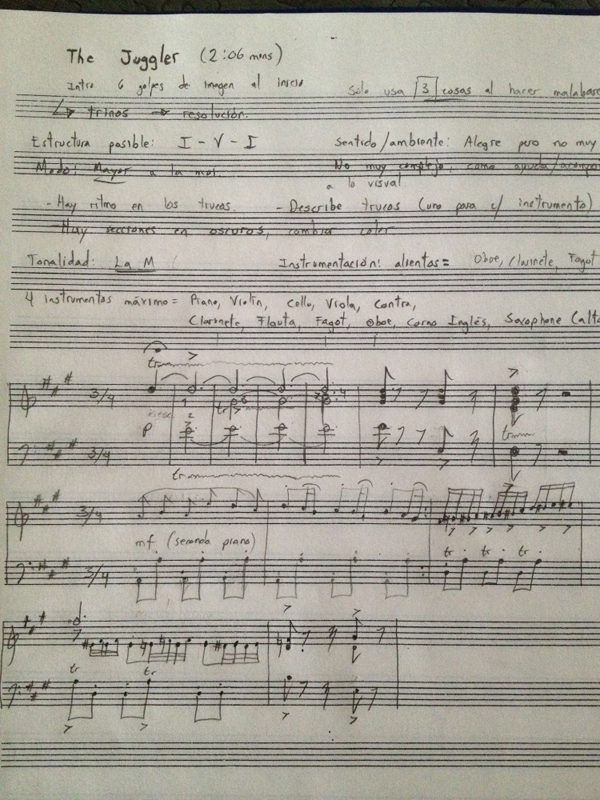 The Juggler (2:06 mins)
Intro 6 golpes de imagen al inicio
Sólo usa 3 cosas al hacer malabares
trinos → resolución.
Estructura posible: I - V - I
Sentido/ambiente: Alegre pero no muy
Modo: Mayor a la mel.
No muy complejo, como ayuda/acompa
a lo visual
- Hay ritmo en los trucos.
- Describe trucos (uno para c/ instrumento)
- Hay secciones en oscuros, cambia color
Tonalidad: La M
Instrumentación: alientos = Oboe, Clarinete, Fagot
4 instrumentos máximo = Piano, Violín, Cello, Viola, Contra,
Clarinete, Flauta, Fagot, Oboe, Corno Inglés, Saxophone (alto
tr
3/4
tr
p
3/4
tr
tr
3/4
mf (segundo piano)
3/4
tr tr tr
tr tr